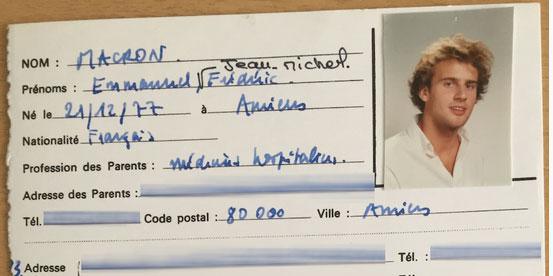 NOM : MACRON.
Prénoms : Emmanuel √ Jean-Michel. Frédéric.
Né le 21/12/77 à Amiens
Nationalité Français
Profession des Parents : médecins hospitaliers.
Adresse des Parents :
Tél. Code postal : 80 000 Ville : Amiens
Adresse Tél. :